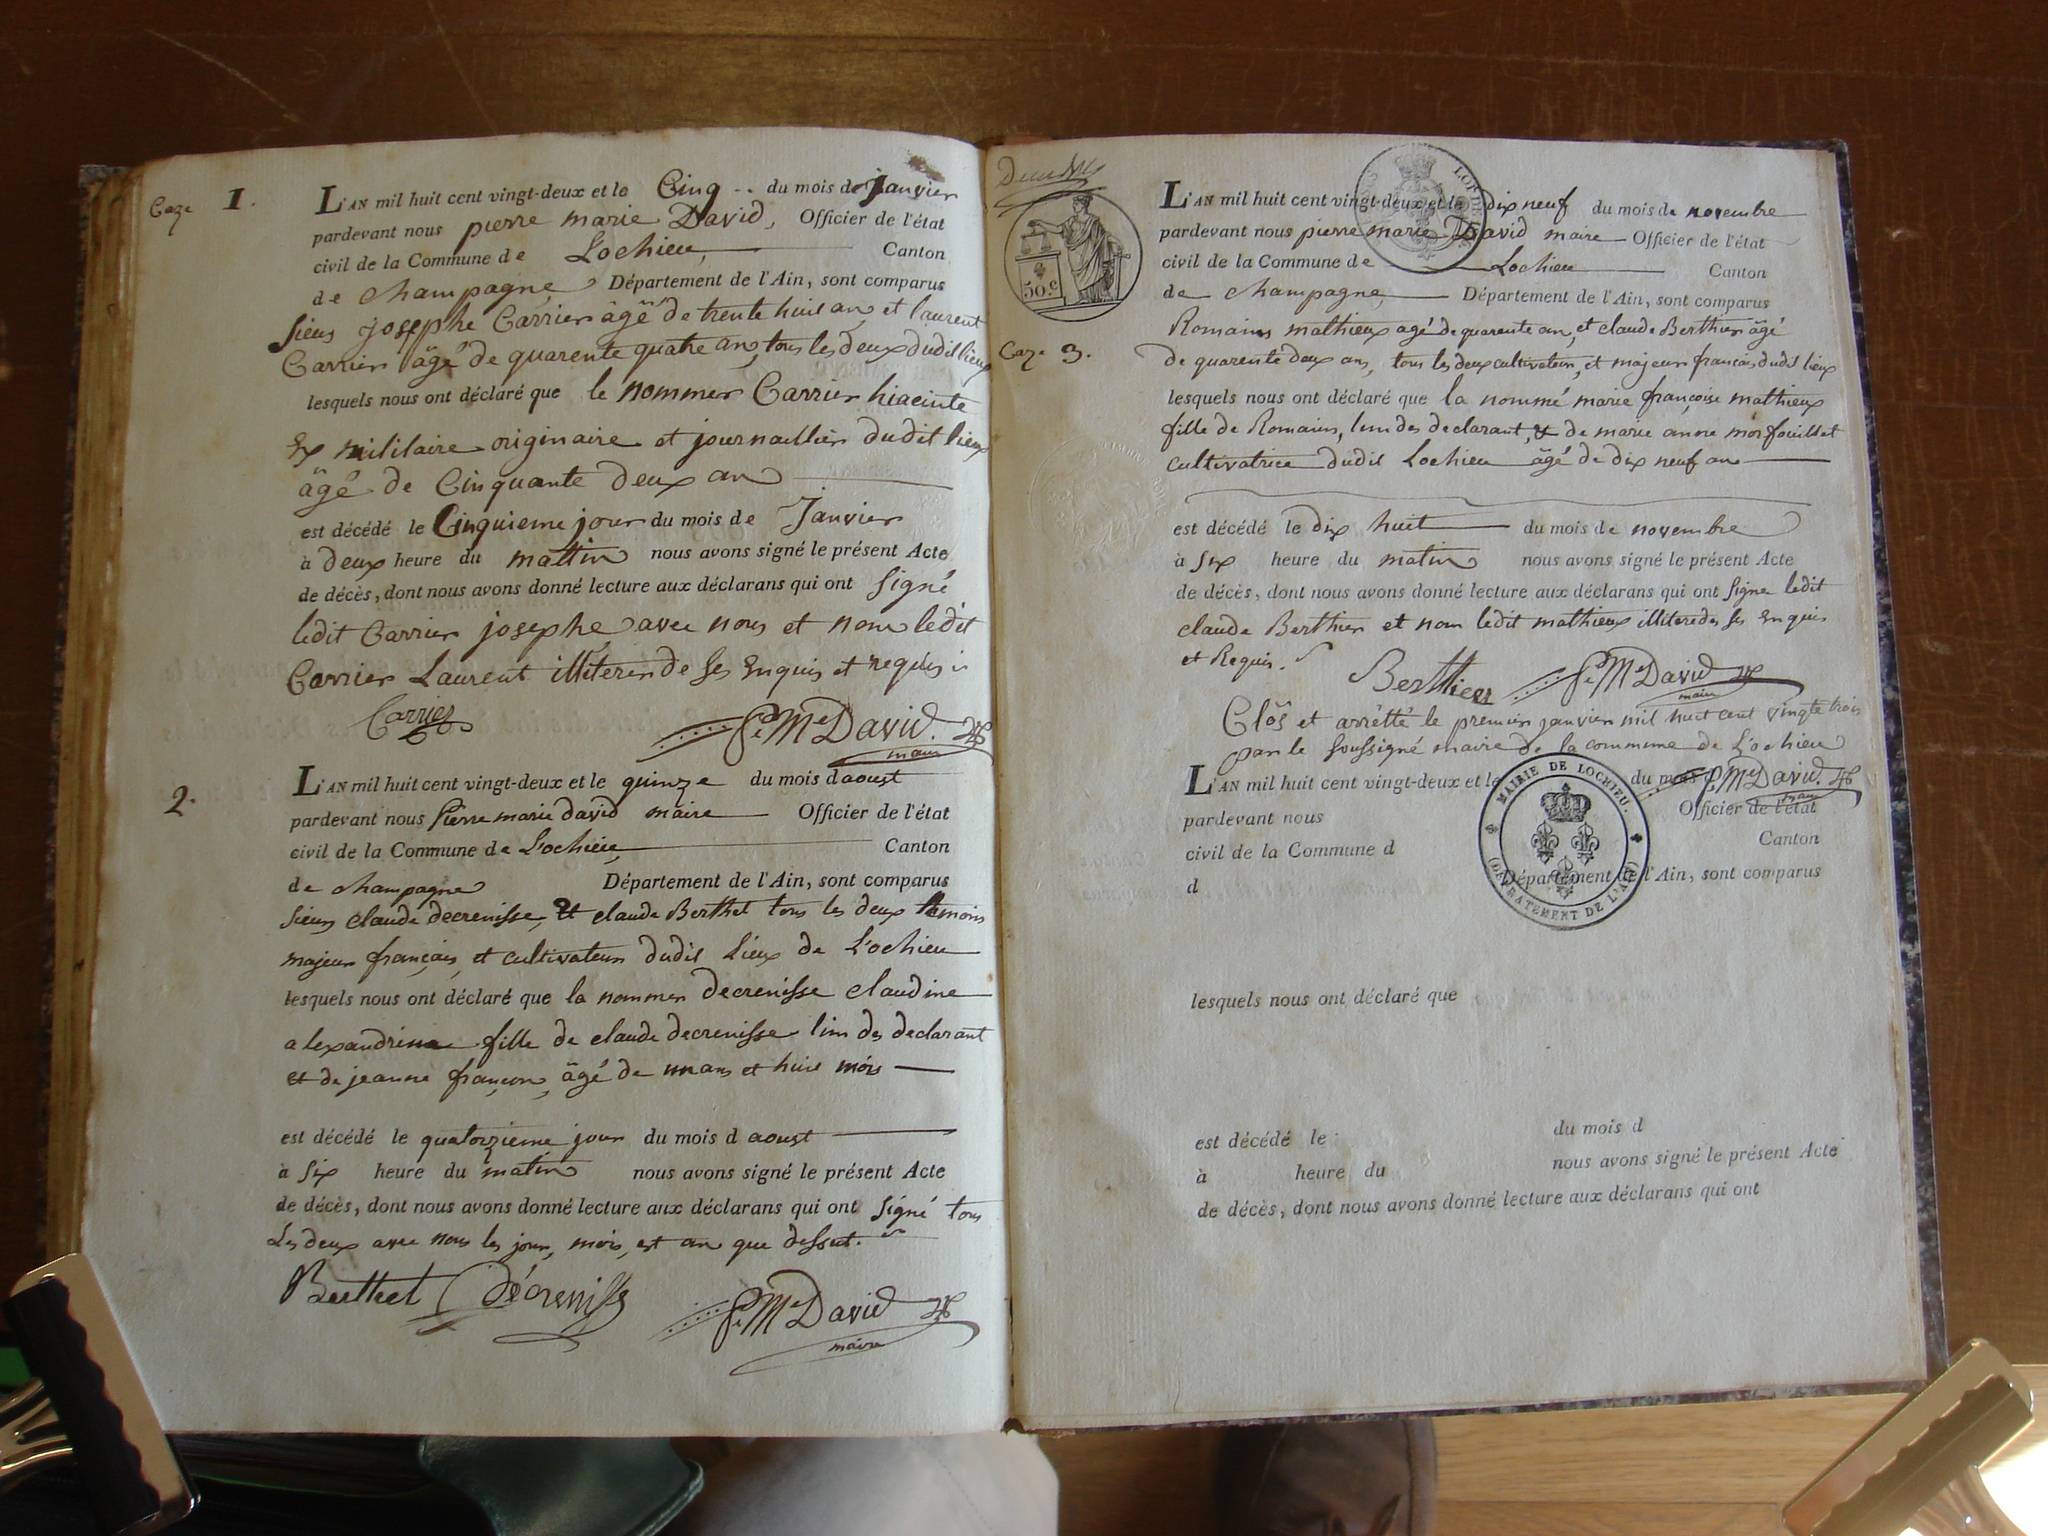 Caze 1.
L'AN mil huit cent vingt-deux et le Cinq du mois de janvier
pardevant nous pierre marie David, Officier de l'état
civil de la Commune de Lochieu, Canton
de champagne, Département de l'Ain, sont comparus
sieus josephe Carrier âgé de trente huit an, et laurent
Carrier âgé de quarente quatre an, tous les deux dudit lieux
lesquels nous ont déclaré que le nommer Carrier hiacinte
Ex militaire originaire et journaillier dudit lieux
âgé de Cinquante deux an
est décédé le Cinquieme jour du mois de Janvier
à deux heure du mattin nous avons signé le présent Acte
de décès, dont nous avons donné lecture aux déclarans qui ont signé
ledit Carrier josephe avec nous et nom ledit
Carrier Laurent illiterer de ses Enquis et requis
Carrier P.e M.e David.
maire
2.
L'AN mil huit cent vingt-deux et le quinze du mois d aoust
pardevant nous Pierre marie david maire Officier de l'état
civil de la Commune de L'ochieu, Canton
de champagne Département de l'Ain, sont comparus
sieurs claude decrenisse, et claude Berthet tous les deux temoins
majeur français, et cultivateur dudit Lieux de L'ochieu
lesquels nous ont déclaré que la nommer decrenisse claudine
alexandrine fille de claude decrenisse l'un des declarant
et de jeanne françon, âgé de un ans et huit mois
est décédé le quatorzieme jour du mois d aoust
à six heure du matin nous avons signé le présent Acte
de décès, dont nous avons donné lecture aux déclarans qui ont signé tous
Les deux avec nous les jour, mois, est an que dessut.
Berthet Décrenisse P.e M.e David
maire
50.c
Caze 3.
L'AN mil huit cent vingt-deux et le dix neuf du mois de novembre
pardevant nous pierre marie David maire Officier de l'état
civil de la Commune de Lochieu Canton
de champagne, Département de l'Ain, sont comparus
Romains mathieux agé de quarente an, et claude Berthier âgé
de quarente deux ans, tous les deux cultivateur, et majeur français dudit lieux
lesquels nous ont déclaré que la nommé marie françoise mathieux
fille de Romains, l'un des declarant, & de marie anne morfouillet
cultivatrice dudit Lochieu âgé de dix neuf an
est décédé le dix huit du mois de novembre
à six heure du matin nous avons signé le présent Acte
de décès, dont nous avons donné lecture aux déclarans qui ont signe ledit
claude Berthier et nom ledit mathieux illitere de ses Enquis
et Requis.
Berthier P.e M.e David
maire
Clôs et arrêtté le premier janvier mil huit cent vingte trois
par le soussigné maire de la commune de L'ochieu
L'AN mil huit cent vingt-deux et le du mois P.e M.e David.
maire
MAIRIE DE LOCHIEU.
(DÉPARTEMENT DE L'AIN)
pardevant nous Officier de l'état
civil de la Commune d Canton
d Département de l'Ain, sont comparus
lesquels nous ont déclaré que
est décédé le du mois d
à heure du nous avons signé le présent Acte
de décès, dont nous avons donné lecture aux déclarans qui ont